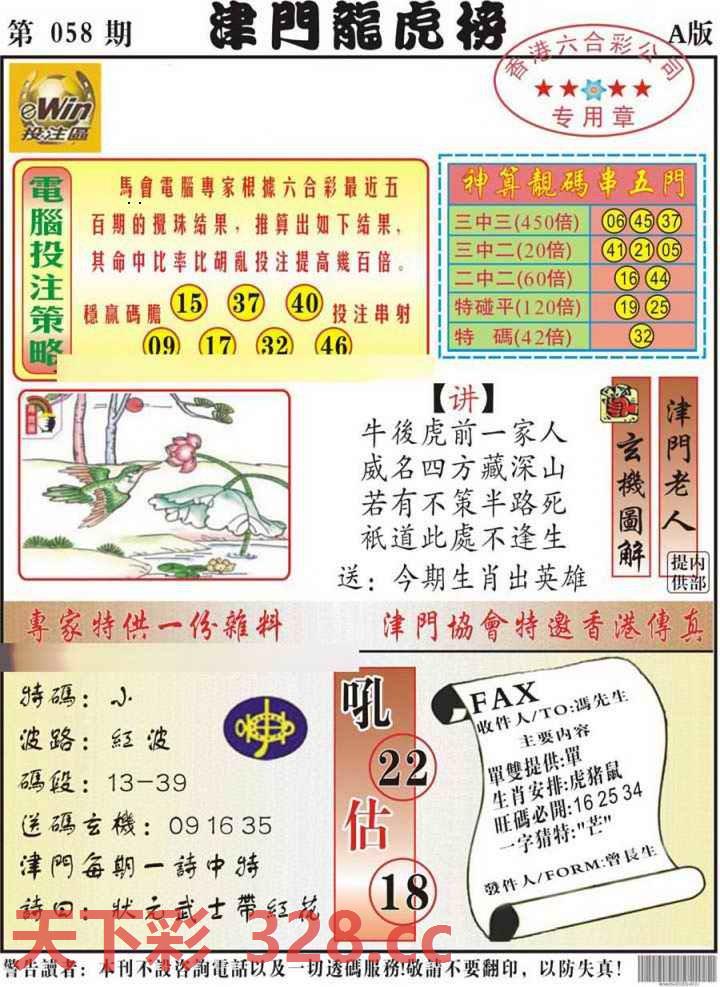 第 058 期
津門龍虎榜
A版
香港六合彩公司
★★★★
专用章
eWin
投注區
電腦投注策略
馬會電腦專家根據六合彩最近五
百期的攪珠結果，推算出如下結果，
其命中比率比胡亂投注提高幾百倍。
穩贏碼膽 15 37 40 投注串射
09 17 32 46
神算靚碼串五門
三中三(450倍) 06 45 37
三中二(20倍) 41 21 05
二中二(60倍) 16 44
特碰平(120倍) 19 25
特 碼(42倍) 32
【讲】
牛後虎前一家人
威名四方藏深山
若有不策半路死
祇道此處不逢生
送：今期生肖出英雄
玄機圖解
津門老人
内部提供
專家特供一份雜料
津門協會特邀香港傳真
特碼：小
波路：紅波
碼段：13-39
送碼玄機：09 16 35
津門每期一詩中特
詩曰：狀元武士帶紅花
吼
22
估
18
FAX
收件人/TO:馮先生
主要内容
單雙提供:單
生肖安排:虎猪鼠
旺碼必開:16 25 34
一字猜特:"芒"
發件人/FORM:曾長生
天下彩 328.cc
警告讀者：本刊不設咨詢電話以及一切透碼服務!敬請不要翻印，以防失真!